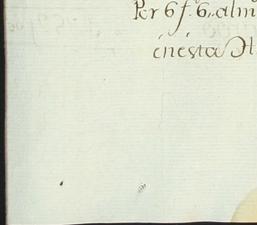 Per 6 f. 6,, alm
énesta